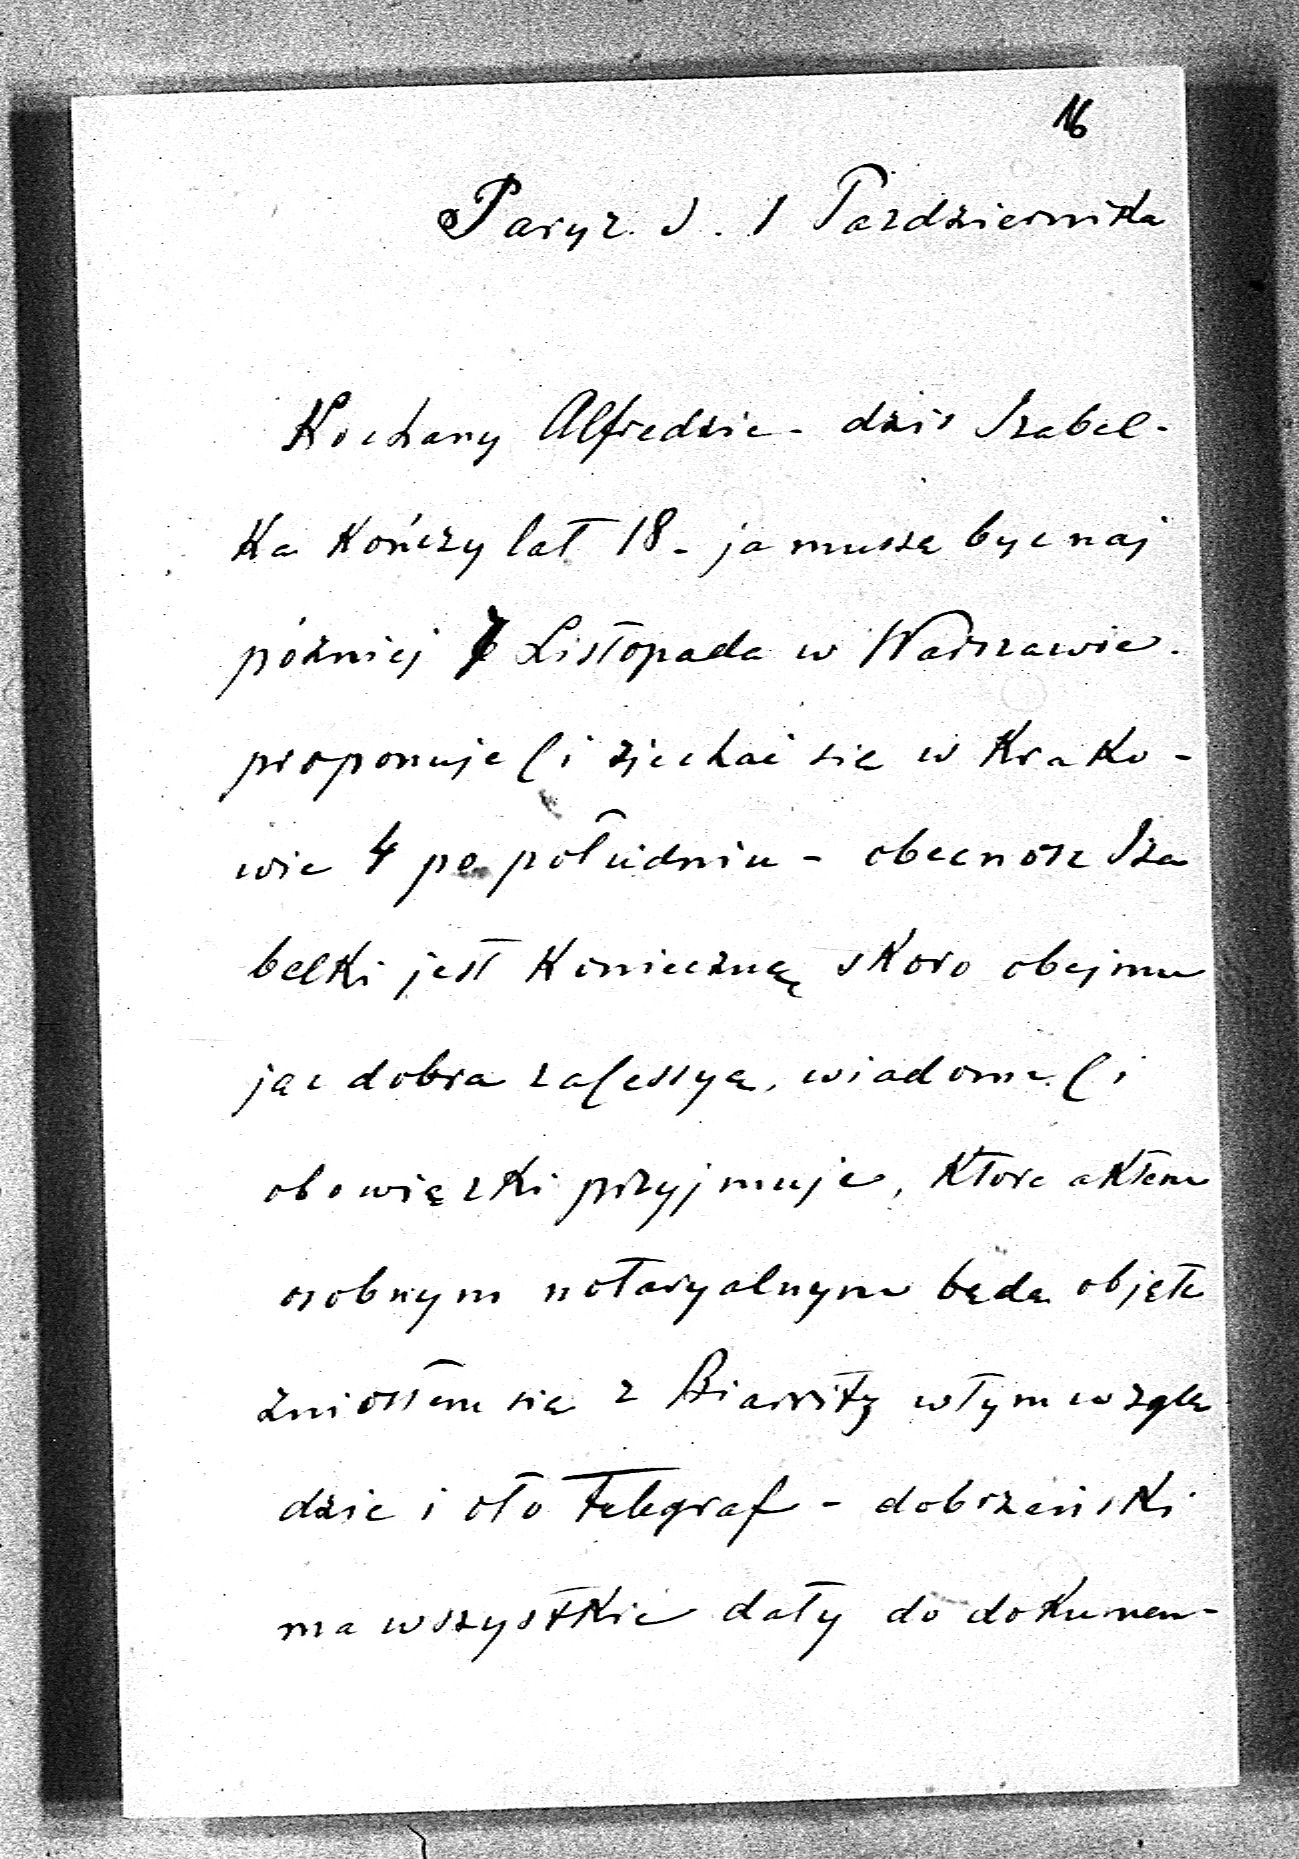 16
Paryz d. 1 Pazdziernika
Kochany Alfredzie - dzis Izabel-
Ka Kończy lat 18 - ja muszę byc naj
pózniej 7 Listopada w Warszawie.
proponuje Ci zjechać się w Krako-
wie 4 po południu - obecnosc Iza
belki jest Konieczną skoro obejmu
jąc dobra za Cessyą, wiadome Ci
obowiązki przyjmuje, Ktore aktem
osobnym notaryalnym będą objęte
zniosłem się z Biarritz w tym wzglę
dzie i oto Telegraf - dobrzański
ma wszystkie daty do dokumen-